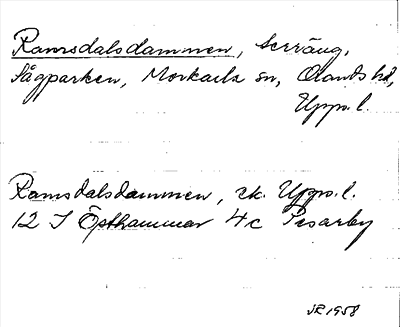 Ramsdalsdammen, terräng,
Sågparken, Morkarla sn, Olands hd,
Upps. l.
Ramsdalsdammen, ek. Upps. l.
12 I Östhammar 4c Pesarby
JR 1958